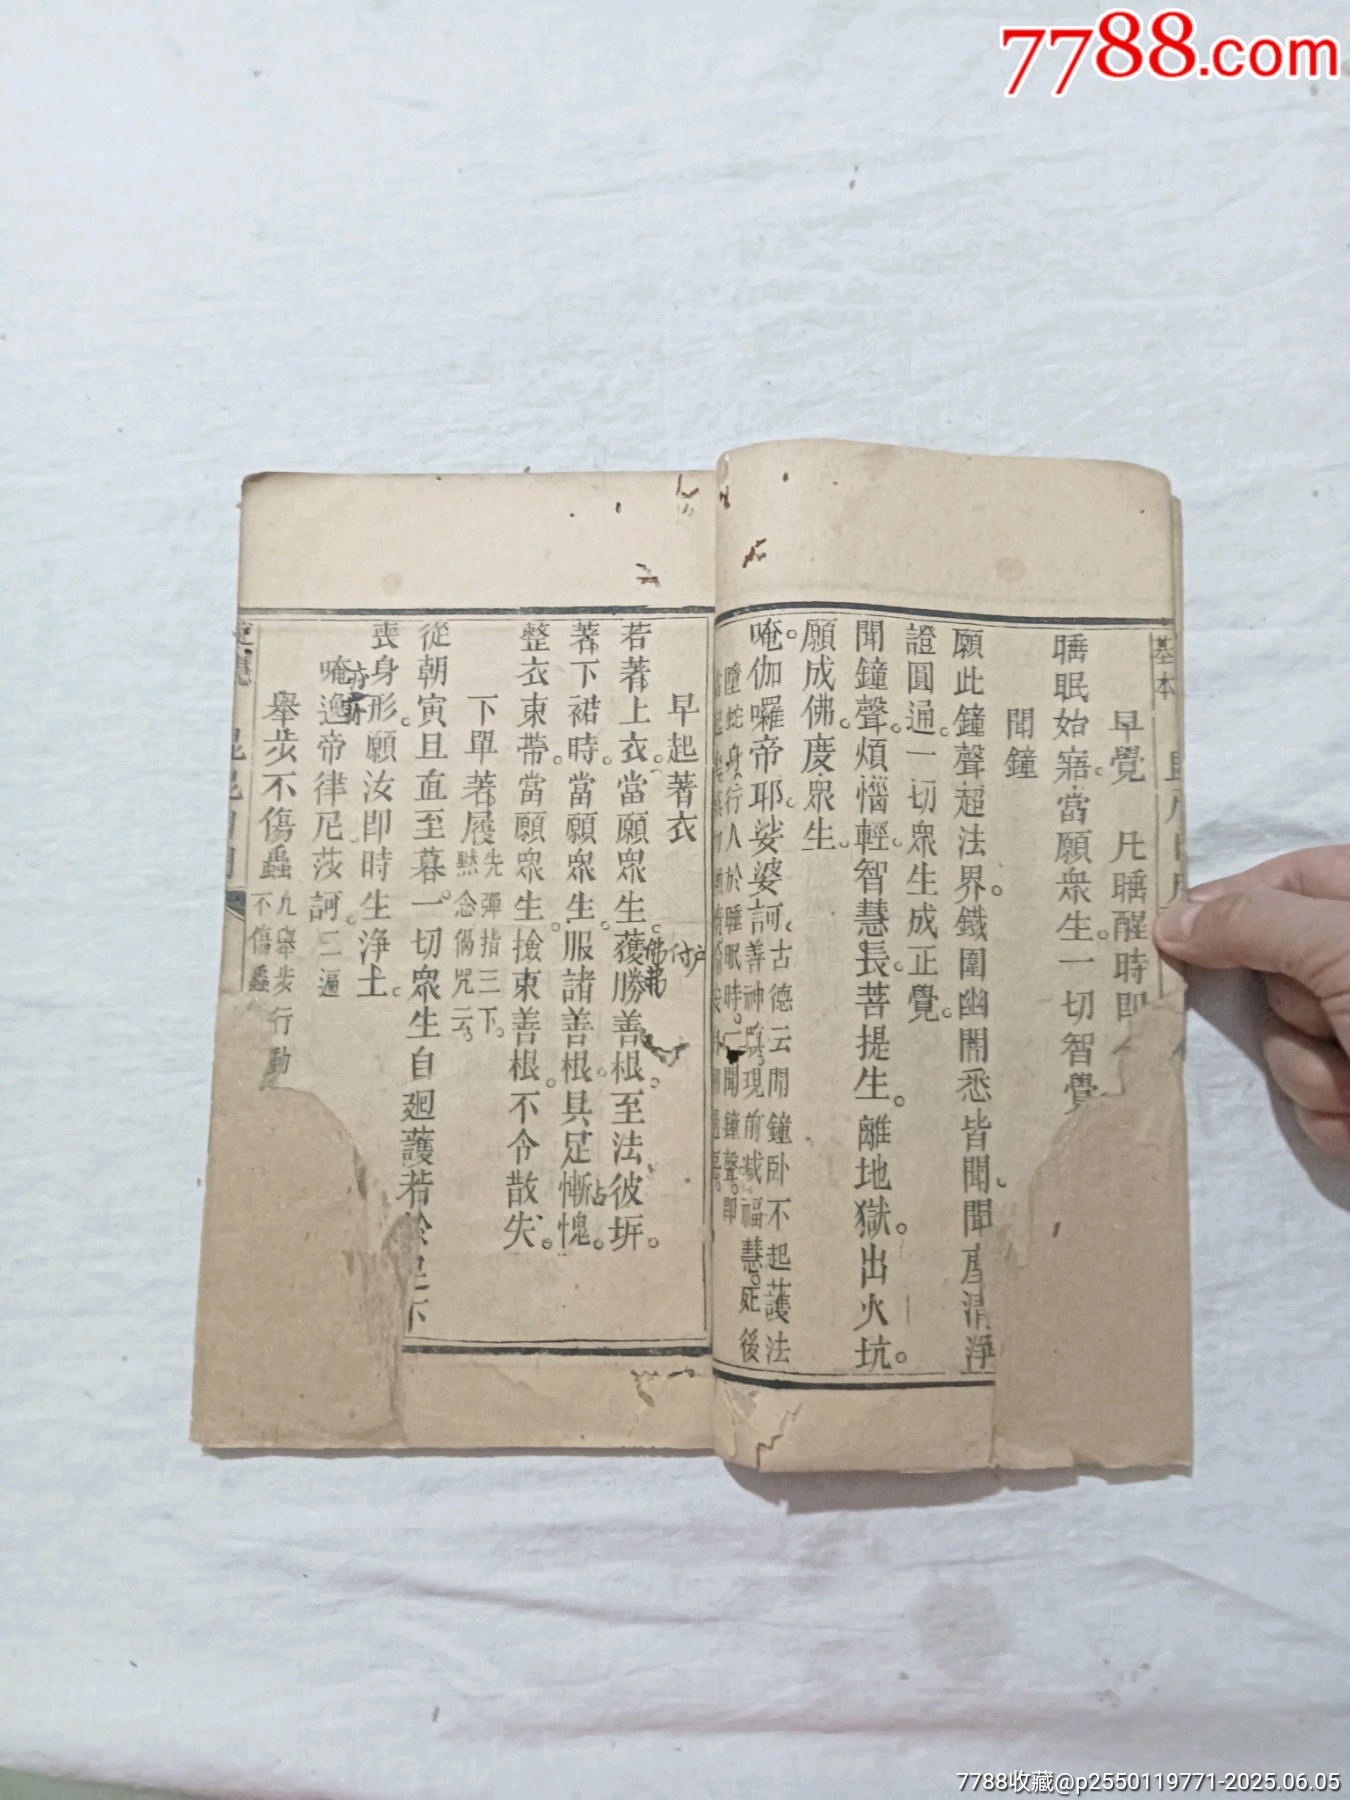 7788.com
早覺 凡睡醒時即
睡眠始寤。當願衆生。一切智覺
聞鐘
願此鐘聲超法界。鐵圍幽闇悉皆聞。聞
清淨
證圓通。一切衆生成正覺。
聞鐘聲。煩惱輕。智慧長。菩提生。離地獄。出火坑。
願成佛。度衆生。
唵。伽囉帝耶。娑婆訶。
古德云聞鐘卧不起護法
善神嗔。現前减福慧。死後
墮蛇身。行人於睡眠時。聞鐘聲。即
早起著衣
若著上衣。當願衆生。獲勝善根。至法彼岸。
著下裙時。當願衆生。服諸善根。具足慚愧。
整衣束帶。當願衆生。撿束善根。不令散失。
下單著屨
先彈指三下。
黙念偈咒云。
從朝寅旦直至暮。一切衆生自迴護若於足下
喪身形。願汝即時生淨土。
唵逸帝律尼莎訶。
三遍
舉步不傷蟲
凡舉步行動
不傷蟲
7788收藏@p2550119771-2025.06.05